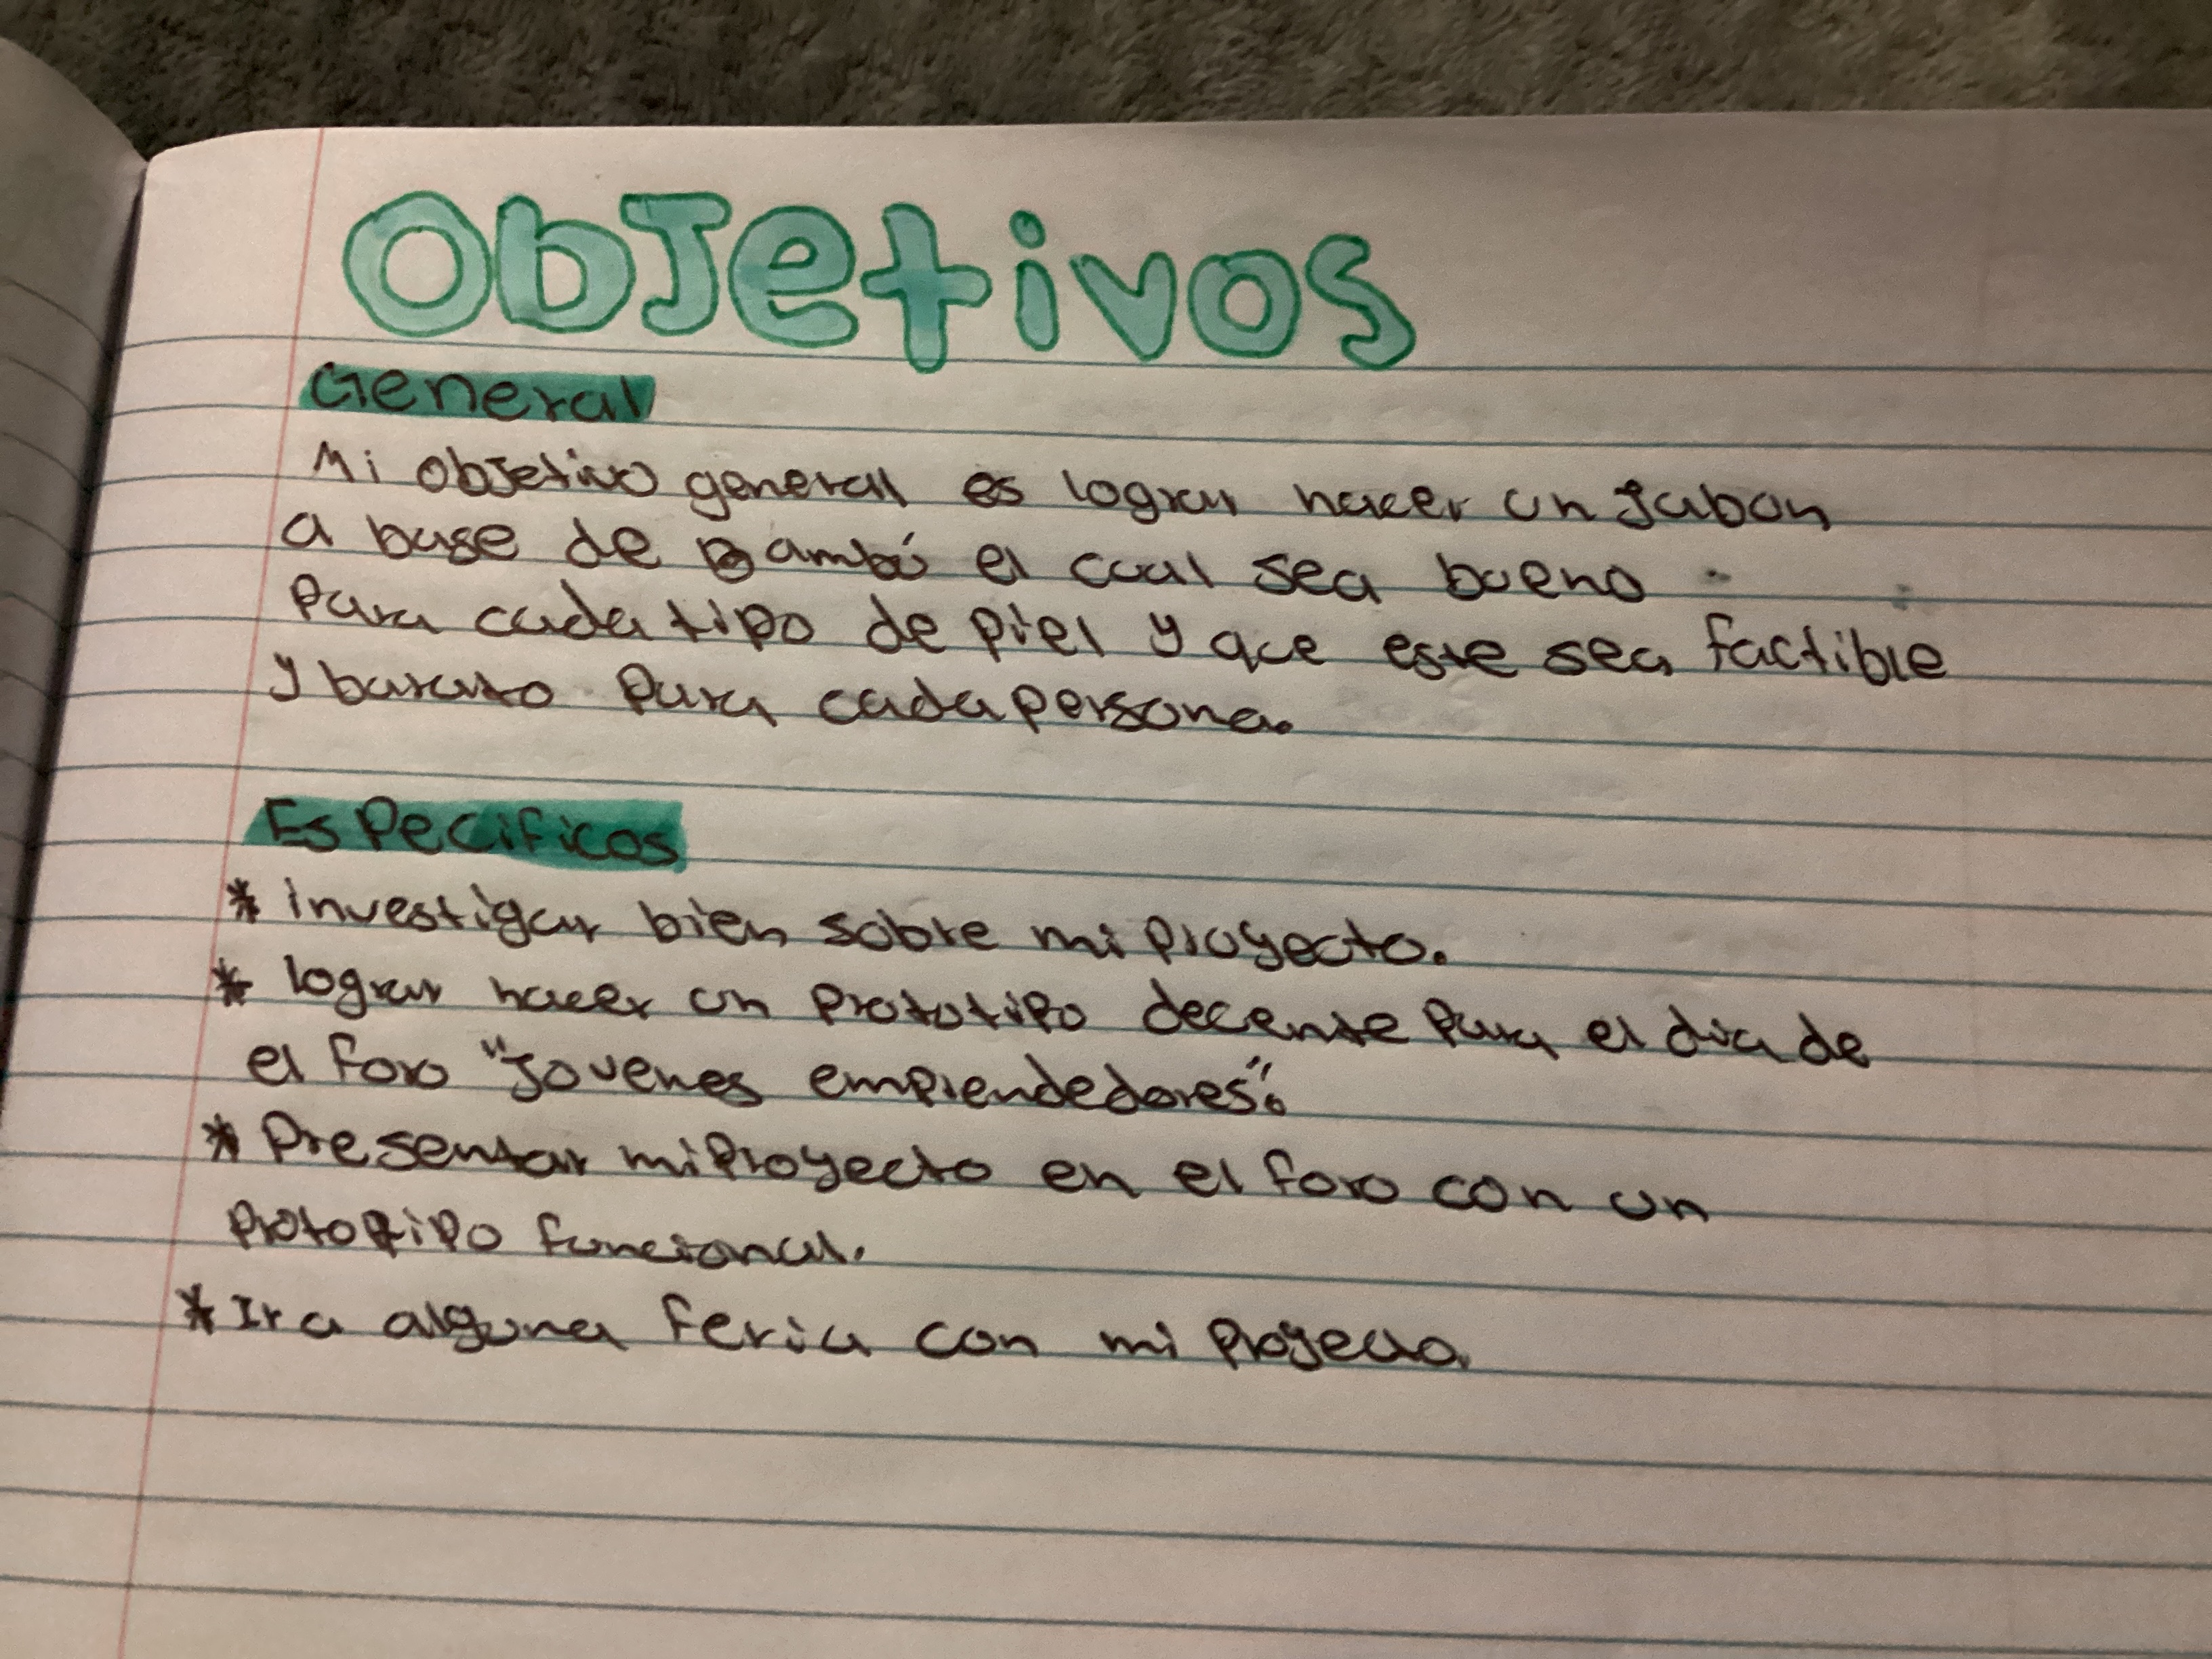 Objetivos
General
Mi objetivo general es lograr hacer un jabon
a base de Bambú el cual sea bueno
para cada tipo de piel y que este sea factible
y barato para cada persona.
Especificos
* investigar bien sobre mi proyecto.
* lograr hacer un prototipo decente para el dia de
el foro "jovenes emprendedores".
* Presentar mi proyecto en el foro con un
prototipo funcional.
* Ir a alguna feria con mi proyecto.